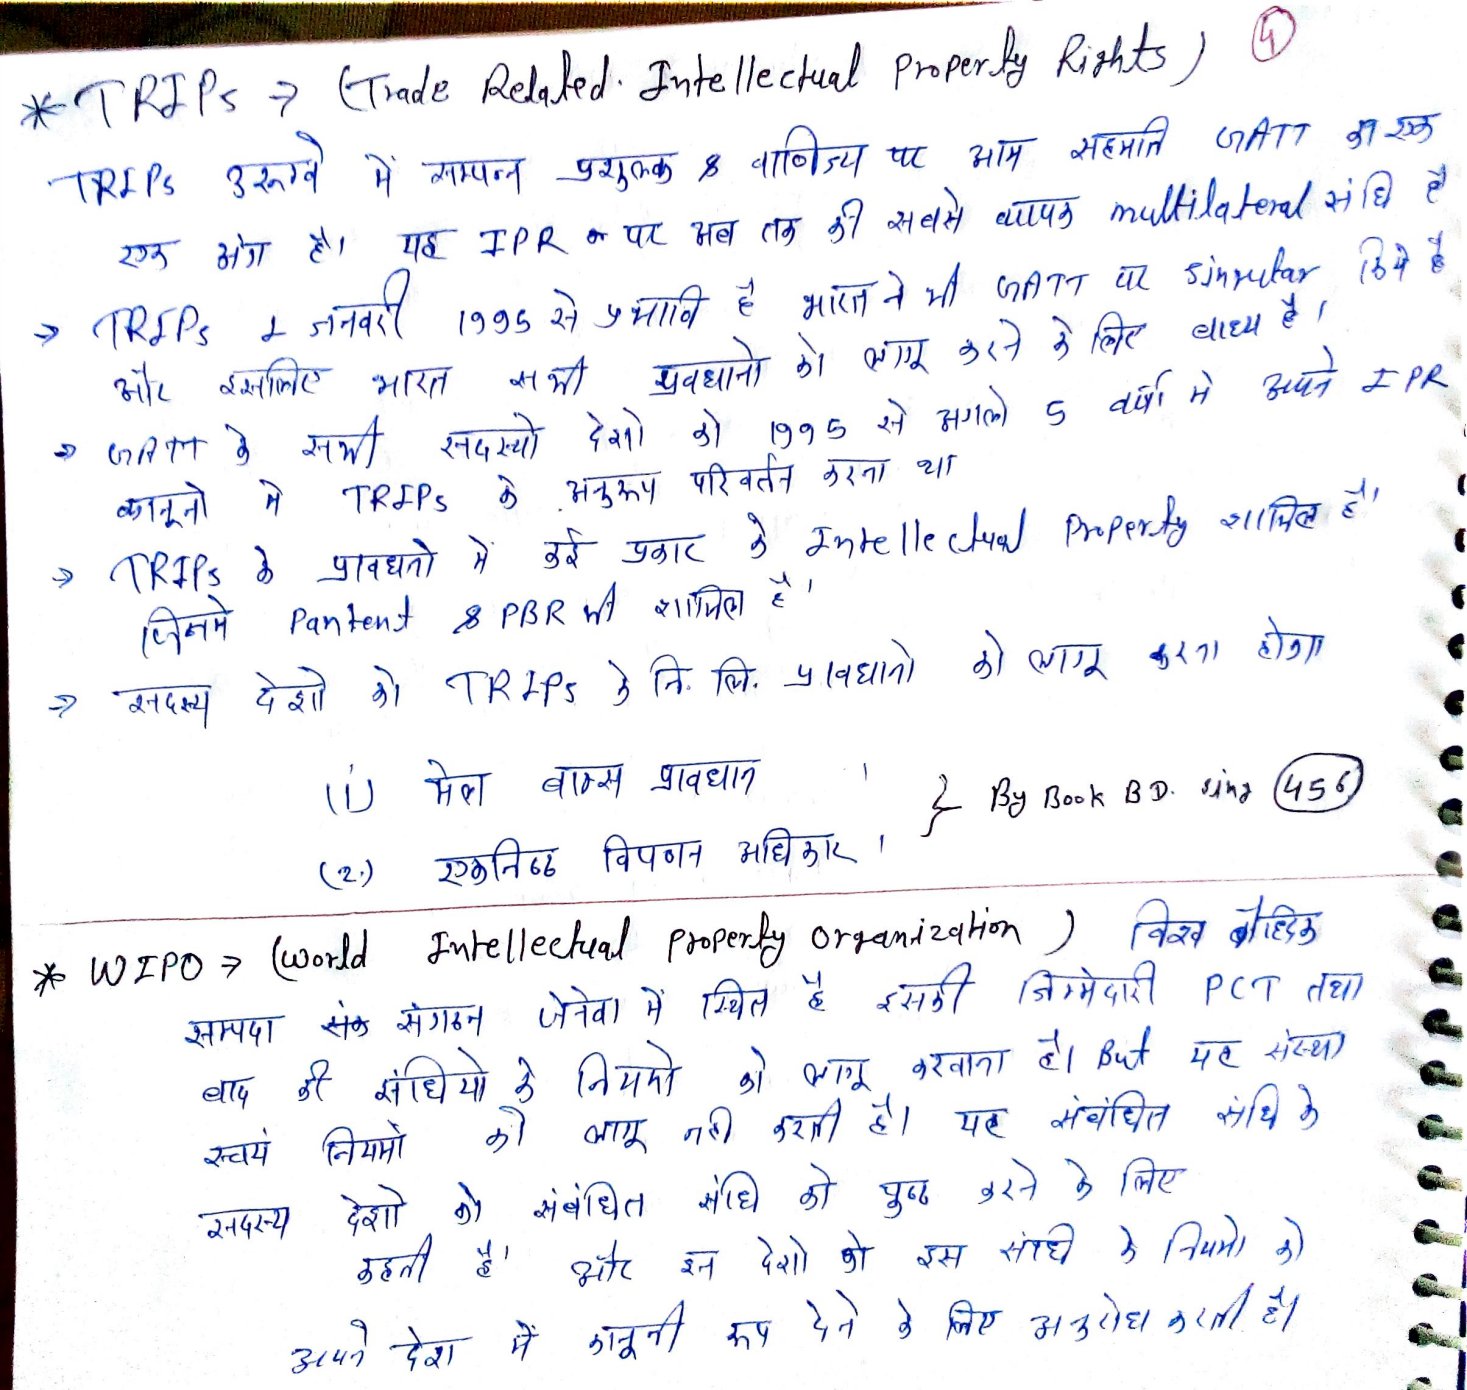 * TRIPs → (Trade Related. Intellectual Property Rights) ④
TRIPs उरूग्वे में सम्पन्न प्रशुल्क & वाणिज्य पर आम सहमति GATT का एक
एक अंग है। यह IPR पर अब तक की सबसे व्यापक multilateral संधि है
→ TRIPs 1 जनवरी 1995 से प्रभावि है भारत ने भी GATT पर किये है
और इसलिए भारत सभी प्रवधानो को लागू करने के लिए बाध्य है।
→ GATT के सभी सदस्यो देशो को 1995 से अगले 5 वर्षो मे अपने IPR
कानूनो मे TRIPs के अनुरूप परिवर्तन करना था
→ TRIPs के प्रावधनो में कई प्रकार के Intellectual Property शामिल है।
जिनमे Pantent & PBR भी शामिल है।
→ सदस्य देशो को TRIPs के नि. लि. प्रावधानो को लागू करना होगा
(1) मेल बाक्स प्रावधान
(2.) एकनिष्ठ विपणन अधिकार। } By Book B D. sing (456)
* WIPO → (World Intellectual Property Organization) विश्व बौद्धिक
सम्पदा संगठन जेनेवा में स्थित है इसकी जिम्मेदारी PCT तथा
बाद की संधियो के नियमो को लागू करवाना है। But यह संस्था
स्वयं नियमो को लागू नही करती है। यह संबंधित संधि के
सदस्य देशो को संबंधित संधि को पुष्ट करने के लिए
कहती है। और इन देशो को इस संधि के नियमो को
अपने देश में कानूनी रूप देने के लिए अनुरोध करती है।